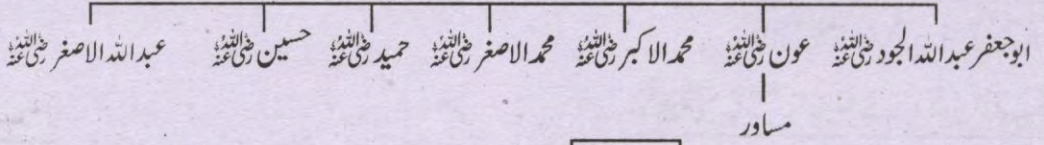 ابوجعفر عبداللہ الجود رضی اللہ عنہ عون رضی اللہ عنہ محمد الاکبر رضی اللہ عنہ محمد الاصغر رضی اللہ عنہ حمید رضی اللہ عنہ حسین رضی اللہ عنہ عبداللہ الاصغر رضی اللہ عنہ
مساور